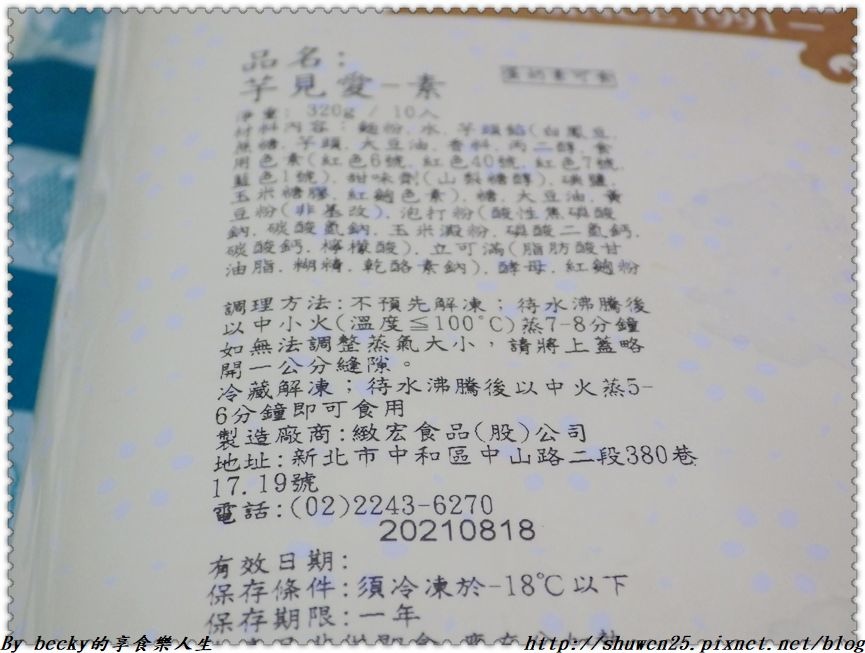 SINCE 1991 –
品名:
芋見愛-素
蛋奶素可食
淨重: 320g / 10入
材料內容: 麵粉.水.芋頭餡(白鳳豆.
蔗糖.芋頭.大豆油.香料.丙二醇.食
用色素(紅色6號.紅色40號.紅色7號.
藍色1號).甜味劑(山梨糖醇).碘鹽.
玉米糖膠.紅麴色素).糖.大豆油.黃
豆粉(非基改).泡打粉(酸性焦磷酸
鈉.碳酸氫鈉.玉米澱粉.磷酸二氫鈣.
碳酸鈣.檸檬酸).立可滿(脂肪酸甘
油脂.糊精.乾酪素鈉).酵母.紅麴粉
調理方法:不預先解凍；待水沸騰後
以中小火(溫度≦100℃)蒸7-8分鐘
如無法調整蒸氣大小，請將上蓋略
開一公分縫隙。
冷藏解凍；待水沸騰後以中火蒸5-
6分鐘即可食用
製造廠商:緻宏食品(股)公司
地址:新北市中和區中山路二段380巷
17.19號
電話:(02)2243-6270
20210818
有效日期:
保存條件:須冷凍於-18℃以下
保存期限:一年
By becky的享食樂人生
http://shuwen25.pixnet.net/blog